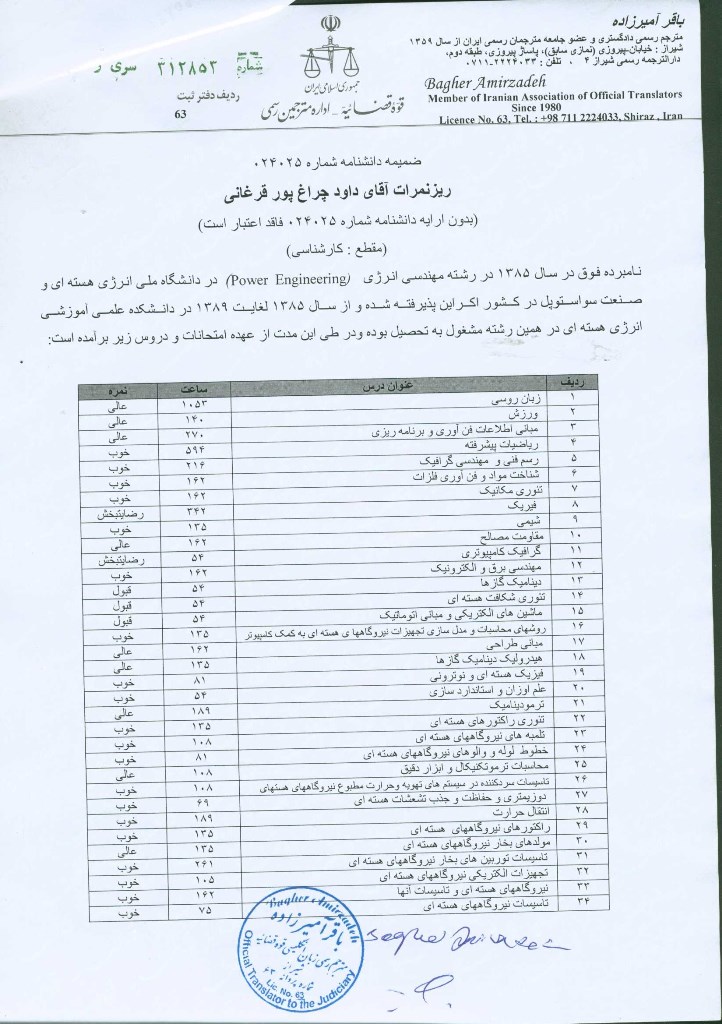 باقر آمیرزاده
مترجم رسمی دادگستری و عضو جامعه مترجمان رسمی ایران از سال ۱۳۵۹
شیراز : خیابان-پیروزی (نمازی سابق)، پاساژ پیروزی، طبقه دوم،
دارالترجمه رسمی شیراز ۴ ، تلفن : ۲۲۲۴۰۳۳-۰۷۱۱
Bagher Amirzadeh
Member of Iranian Association of Official Translators
Since 1980
Licence No. 63, Tel. : +98 711 2224033, Shiraz , Iran
جمهوری اسلامی ایران
قوهٔ قضائیه - اداره مترجمین رسمی
شماره ۲۱۲۸۵۲ سری ر
ردیف دفتر ثبت
63
ضمیمه دانشنامه شماره ۰۲۴۰۲۵
ریزنمرات آقای داود چراغ پور قرغانی
(بدون ارایه دانشنامه شماره ۰۲۴۰۲۵ فاقد اعتبار است)
(مقطع : کارشناسی)
نامبرده فوق در سال ۱۳۸۵ در رشته مهندسی انرژی (Power Engineering) در دانشگاه ملی انرژی هسته ای و
صنعت سواستوپل در کشور اکراین پذیرفته شده و از سال ۱۳۸۵ لغایت ۱۳۸۹ در دانشکده علمی آموزشی
انرژی هسته ای در همین رشته مشغول به تحصیل بوده ودر طی این مدت از عهده امتحانات و دروس زیر برآمده است:
ردیف عنوان درس ساعت نمره
۱ زبان روسی ۱۰۵۳ عالی
۲ ورزش ۱۴۰ عالی
۳ مبانی اطلاعات فن آوری و برنامه ریزی ۲۷۰ عالی
۴ ریاضیات پیشرفته ۵۹۴ خوب
۵ رسم فنی و مهندسی گرافیک ۲۱۶ خوب
۶ شناخت مواد و فن آوری فلزات ۱۶۲ خوب
۷ تئوری مکانیک ۱۶۲ خوب
۸ فیزیک ۳۴۲ رضایتبخش
۹ شیمی ۱۳۵ خوب
۱۰ مقاومت مصالح ۱۶۲ عالی
۱۱ گرافیک کامپیوتری ۵۴ رضایتبخش
۱۲ مهندسی برق و الکترونیک ۱۶۲ خوب
۱۳ دینامیک گازها ۵۴ قبول
۱۴ تئوری شکافت هسته ای ۵۴ قبول
۱۵ ماشین های الکتریکی و مبانی اتوماتیک ۵۴ قبول
۱۶ روشهای محاسبات و مدل سازی تجهیزات نیروگاهها ی هسته ای به کمک کامپیوتر ۱۳۵ خوب
۱۷ مبانی طراحی ۱۶۲ عالی
۱۸ هیدرولیک دینامیک گازها ۱۳۵ عالی
۱۹ فیزیک هسته ای و نوترونی ۸۱ خوب
۲۰ علم اوزان و استاندارد سازی ۵۴ خوب
۲۱ ترمودینامیک ۱۸۹ عالی
۲۲ تئوری راکتورهای هسته ای ۱۳۵ خوب
۲۳ تلمبه های نیروگاههای هسته ای ۱۰۸ خوب
۲۴ خطوط لوله و والوهای نیروگاههای هسته ای ۸۱ خوب
۲۵ محاسبات ترموتکنیکال و ابزار دقیق ۱۰۸ عالی
۲۶ تاسیسات سردکننده در سیستم های تهویه وحرارت مطبوع نیروگاههای هستهای ۱۰۸ خوب
۲۷ دوزیمتری و حفاظت و جذب تشعشات هسته ای ۶۹ خوب
۲۸ انتقال حرارت ۱۸۹ خوب
۲۹ راکتورهای نیروگاههای هسته ای ۱۳۵ خوب
۳۰ مولدهای بخار نیروگاههای هسته ای ۱۳۵ عالی
۳۱ تاسیسات توربین های بخار نیروگاههای هسته ای ۲۶۱ خوب
۳۲ تجهیزات الکتریکی نیروگاههای هسته ای ۱۰۵ خوب
۳۳ نیروگاههای هسته ای و تاسیسات آنها ۱۶۲ خوب
۳۴ تاسیسات نیروگاههای هسته ای ۷۵ خوب
Bagher Amirzadeh
باقر امیرزاده
مترجم رسمی زبان انگلیسی قوه قضائیه
شیراز
شماره پروانه ۶۳
Lic. No. 63
Official Translator to the Judiciary